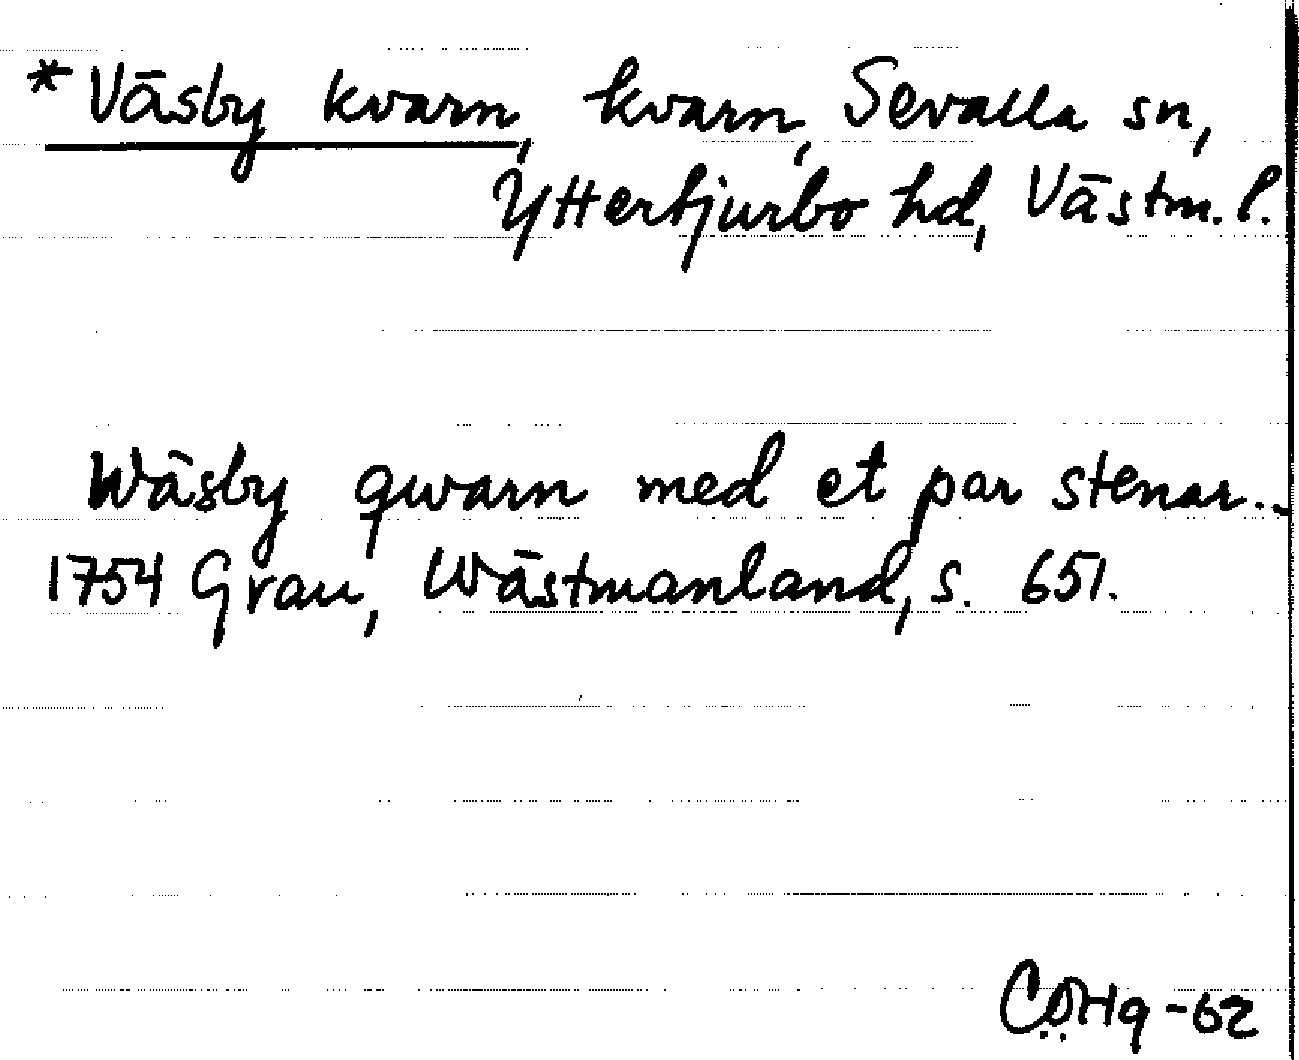 *Väsby kvarn, kvarn, Sevalla sn,
Yttertjurbo hd, Västm. l.
Wäsby qwarn med et par stenar..
1754 Grau, Wästmanland, s. 651.
-62